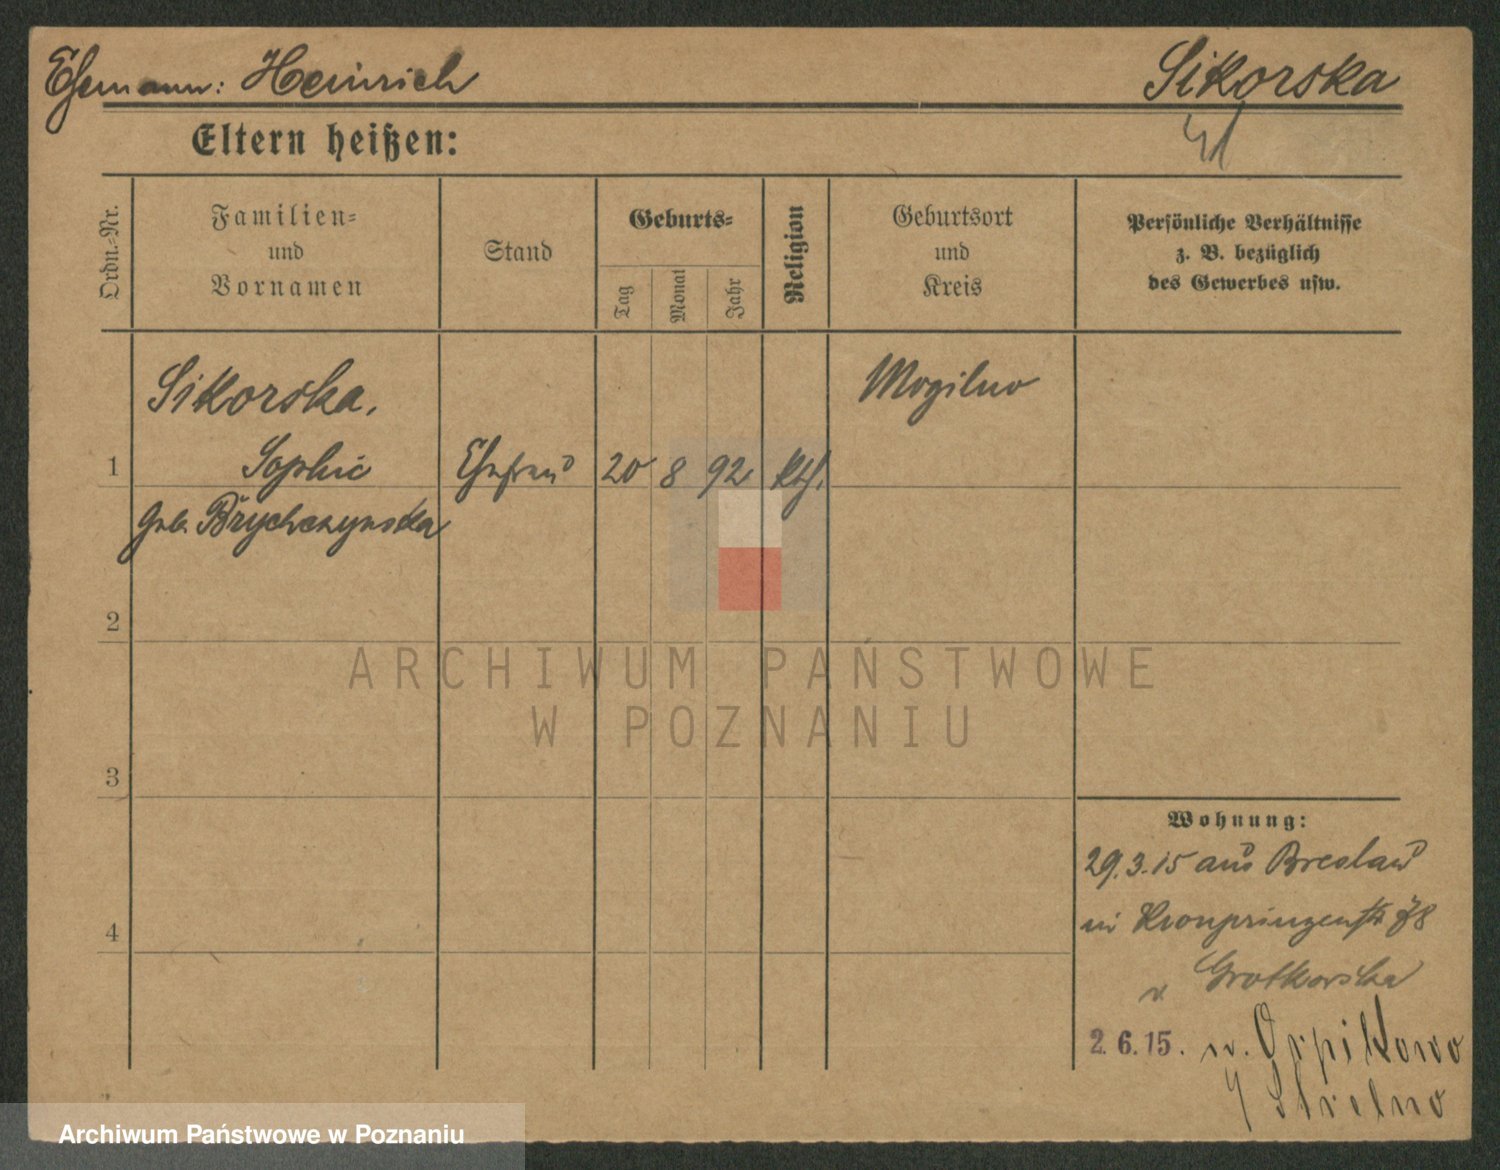 Ehemann: Heinrich Sikorska
Eltern heißen:
Ordn.-Nr.
Familien-
und
Vornamen
Stand
Geburts-
Tag
Monat
Jahr
Religion
Geburtsort
und
Kreis
Persönliche Verhältnisse
z. B. bezüglich
des Gewerbes usw.
Sikorska, Mogilno
1 Sophie Ehefrau 20 8 92 kth.
geb. Brychczynska
2
3
4
Wohnung:
29.3.15 aus Breslau
in Kronprinzenstr 78
Grotkorska
2. 6. 15. n. Orpikowo
Strelno
ARCHIWUM PAŃSTWOWE
W POZNANIU
Archiwum Państwowe w Poznaniu